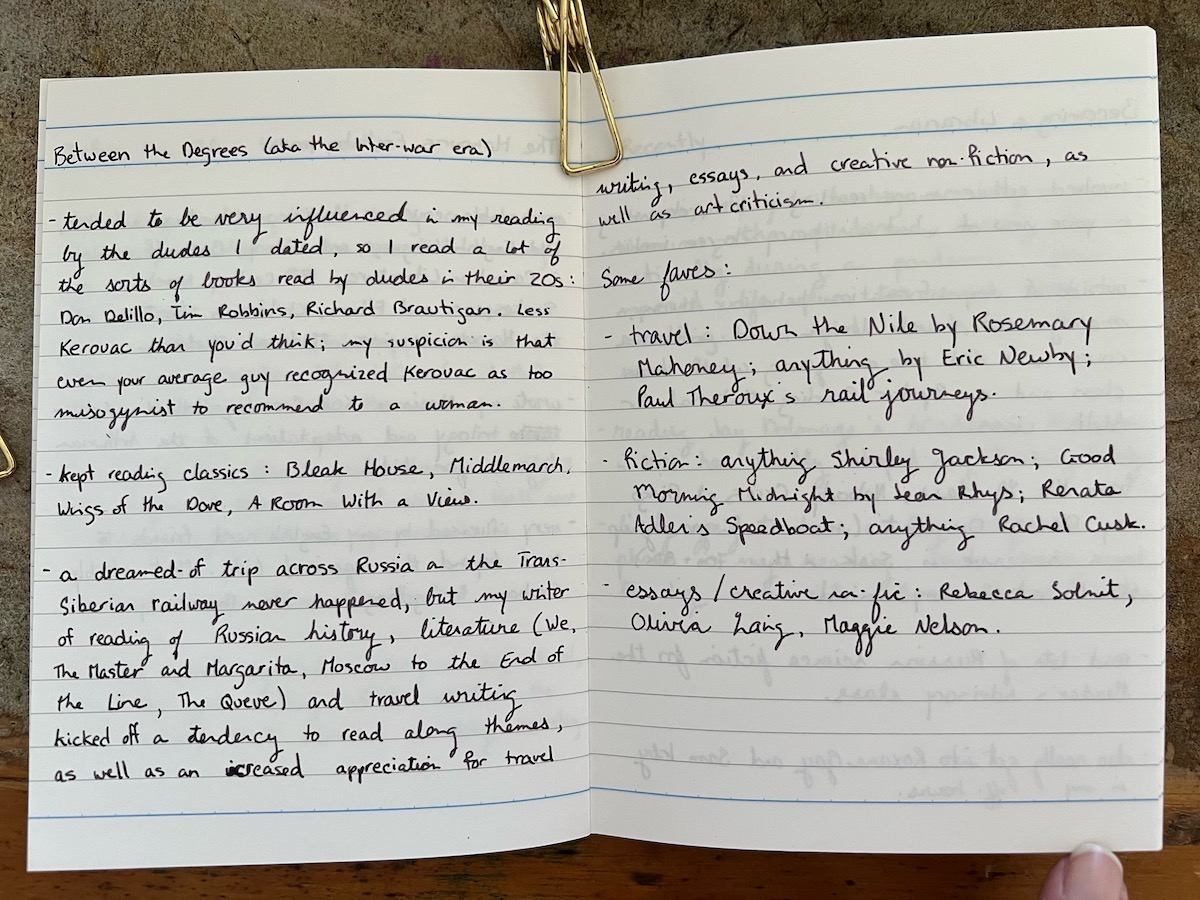 Between the Degrees (aka the Inter-war era)
- tended to be very influenced in my reading
by the dudes I dated, so I read a lot of
the sorts of books read by dudes in their 20s:
Don Delillo, Tim Robbins, Richard Brautigan. Less
Kerouac than you'd think; my suspicion is that
even your average guy recognized Kerouac as too
misogynist to recommend to a woman.
- kept reading classics: Bleak House, Middlemarch,
Wings of the Dove, A Room With a View.
- a dreamed-of trip across Russia on the Trans-
Siberian railway never happened, but my winter
of reading of Russian history, literature (We,
The Master and Margarita, Moscow to the End of
the Line, The Queue) and travel writing
kicked off a tendency to read along themes,
as well as an increased appreciation for travel
writing, essays, and creative non-fiction, as
well as art criticism.
Some faves:
- travel: Down the Nile by Rosemary
Mahoney; anything by Eric Newby;
Paul Theroux's rail journeys.
- fiction: anything Shirley Jackson; Good
Morning Midnight by Jean Rhys; Renata
Adler's Speedboat; anything Rachel Cusk.
- essays/creative non-fic: Rebecca Solnit,
Olivia Laing, Maggie Nelson.